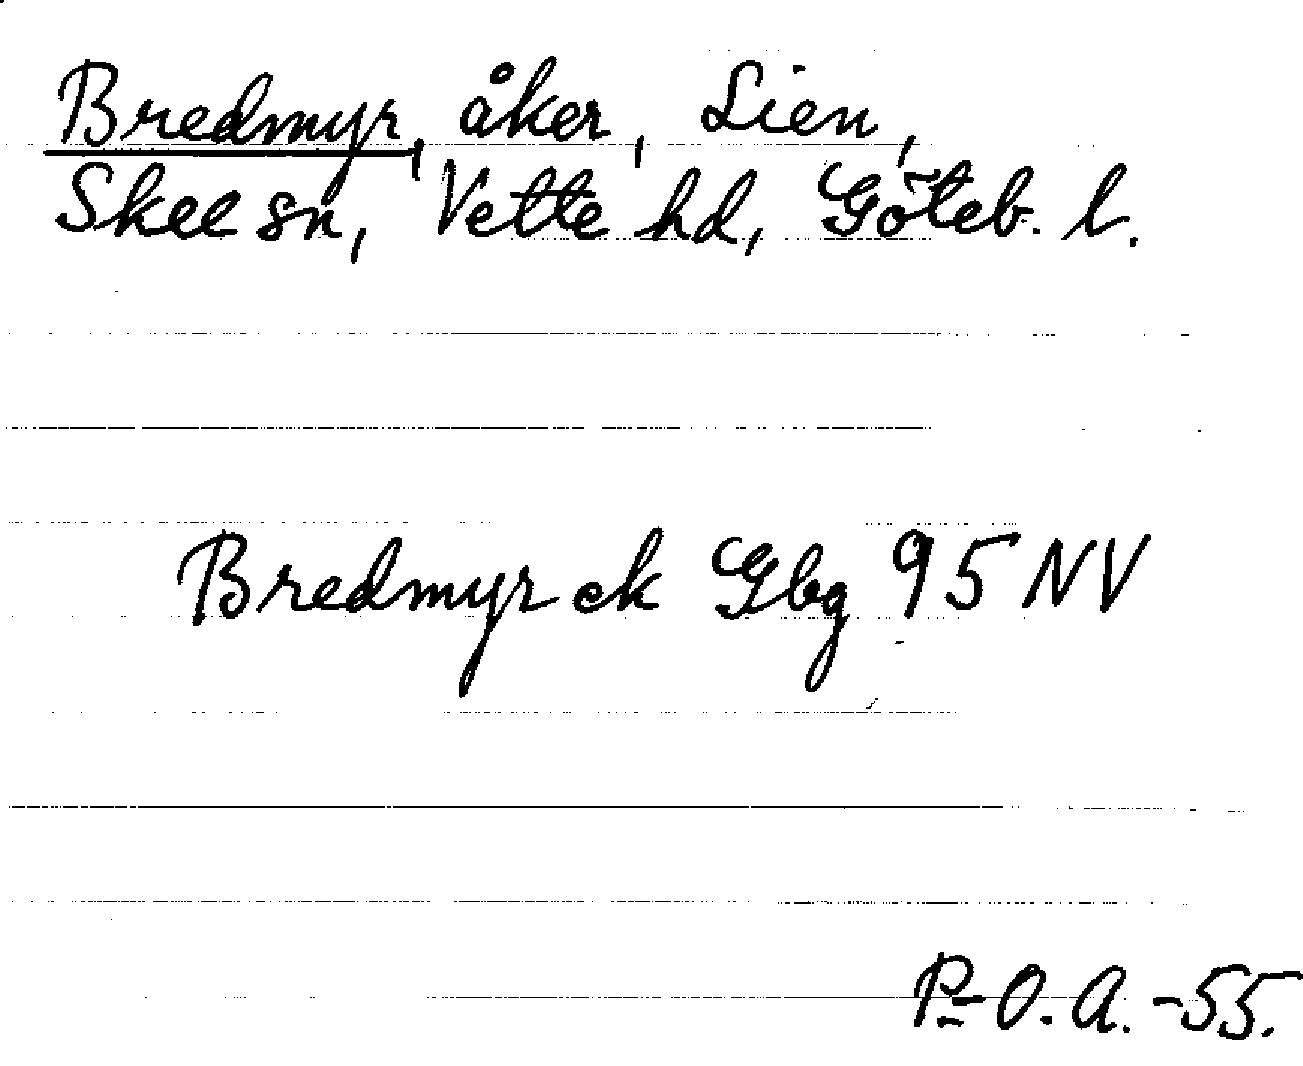 Bredmyr, åker, Lien,
Skee sn, Vette hd, Göteb. l.
Bredmyr ek Gbg 95 NV
P-O.A. -55.